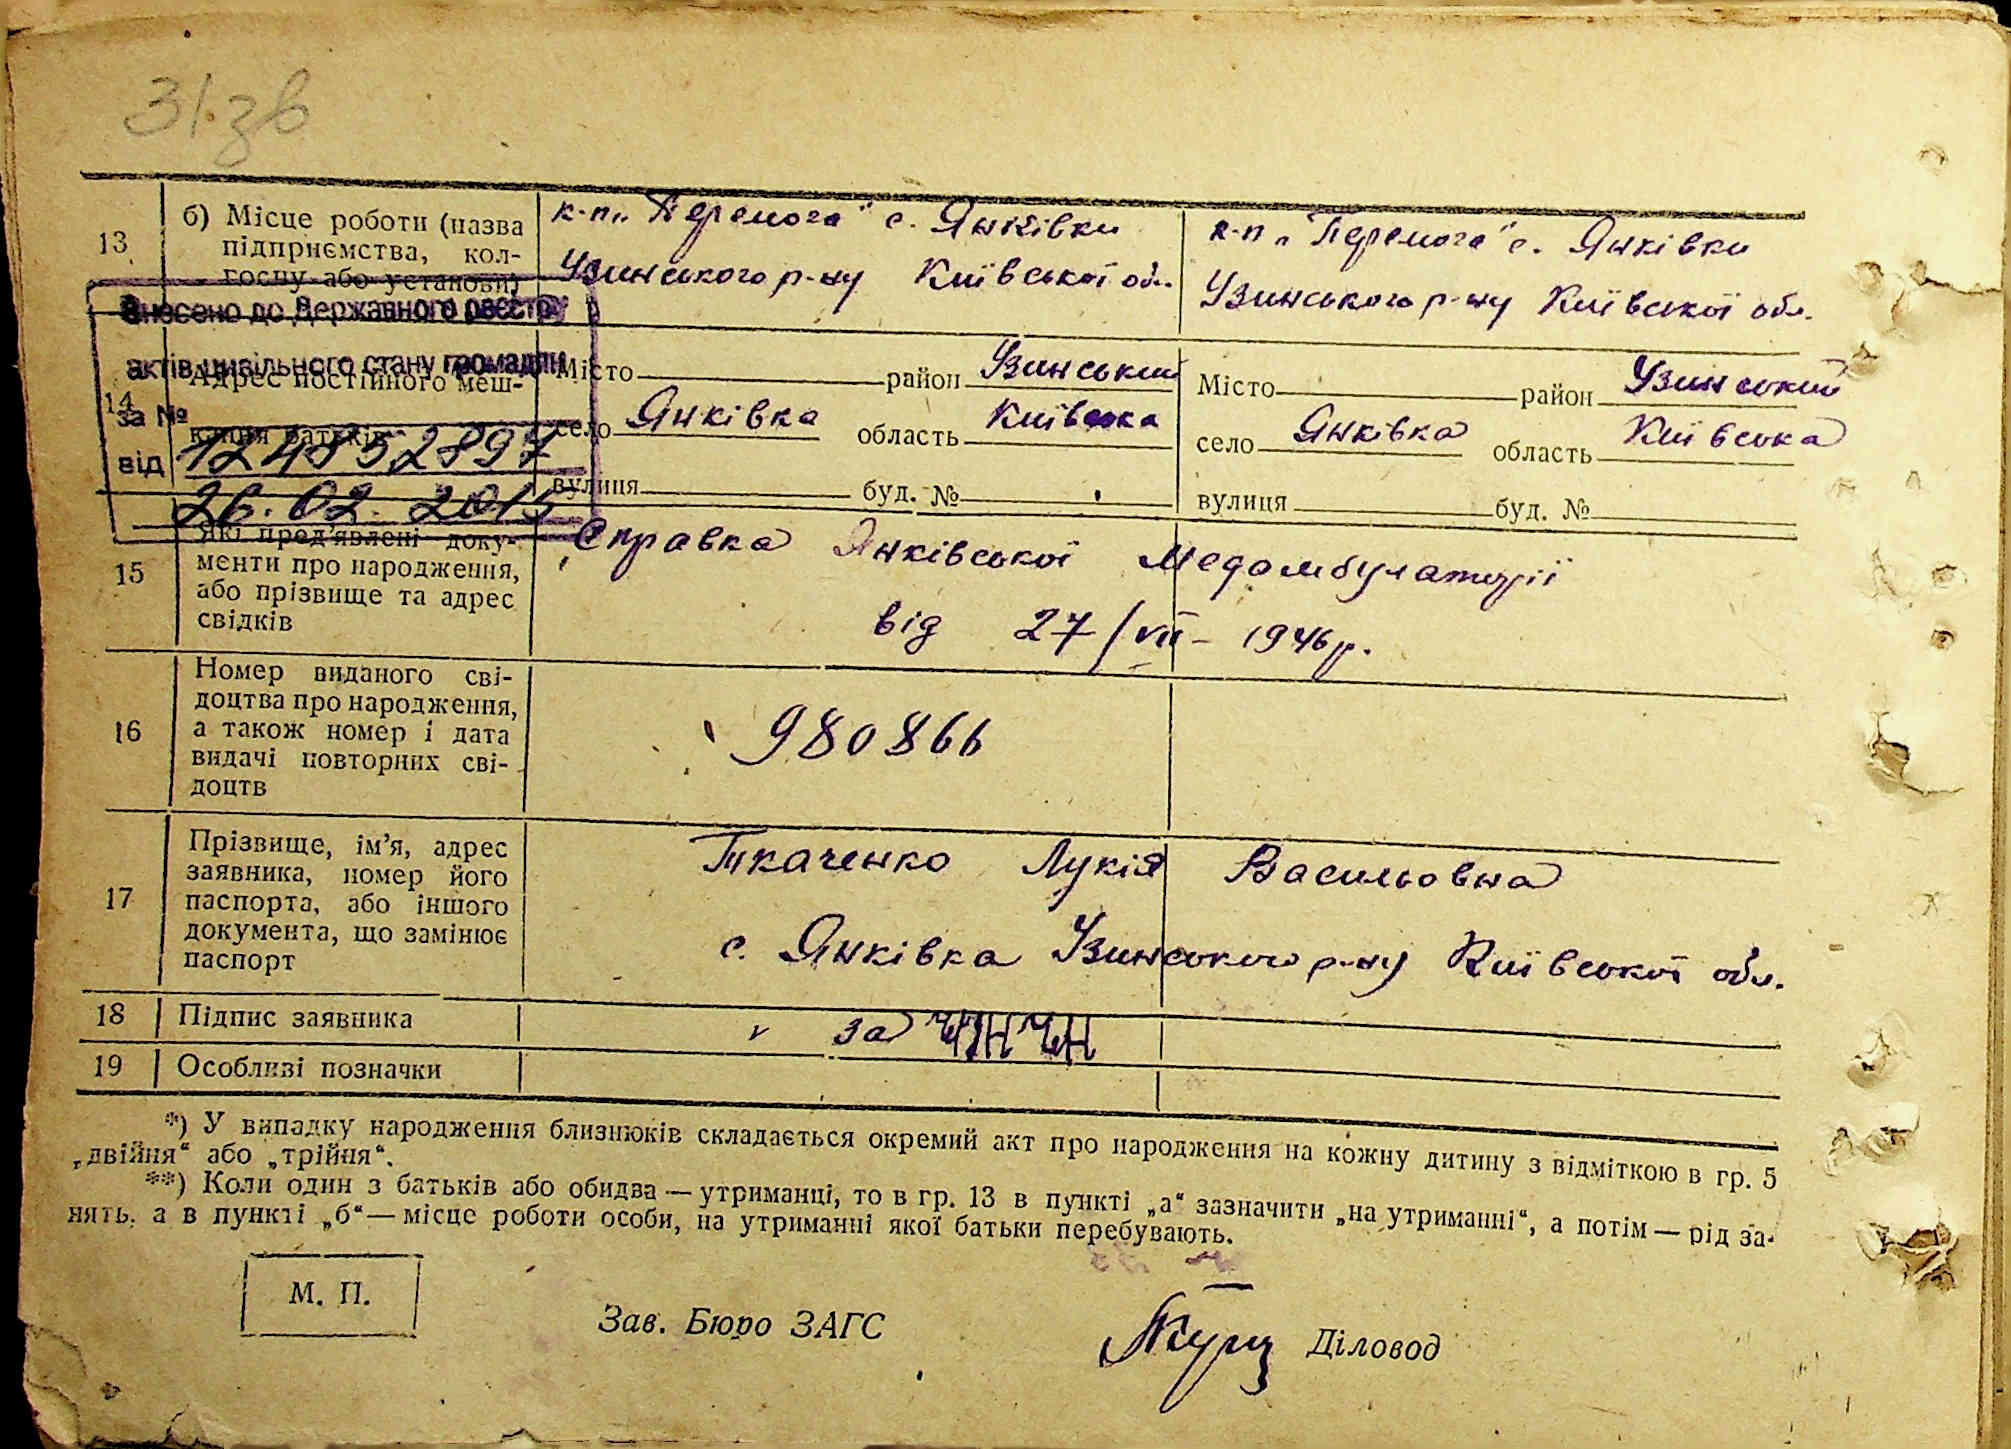 31 зв
13
б) Місце роботи (назва
підприємства, кол-
госпу або установи)
к-п „Перемога" с. Янківки
Узинського р-ну Київської обл.
к-п „Перемога" с. Янківки
Узинського р-ну Київської обл.
Внесено до Державного реєстру
актів цивільного стану громадян
за №
124852897
від
26.02.2015
14
Адрес постійного меш-
кання батьків
Місто район Узинський
село Янківка область Київська
вулиця буд. №
Місто район Узинський
село Янківка область Київська
вулиця буд. №
15
Які пред'явлені доку-
менти про народження,
або прізвище та адрес
свідків
Справка Янківської медамбулаторії
від 27/VII - 1946 р.
16
Номер виданого сві-
доцтва про народження,
а також номер і дата
видачі повторних сві-
доцтв
980866
17
Прізвище, ім'я, адрес
заявника, номер його
паспорта, або іншого
документа, що замінює
паспорт
Ткаченко Лукія Васильовна
с. Янківка Узинського р-ну Київської обл.
18 Підпис заявника
за
19 Особливі позначки
*) У випадку народження близнюків складається окремий акт про народження на кожну дитину з відміткою в гр. 5
„двійня“ або „трійня“.
**) Коли один з батьків або обидва — утриманці, то в гр. 13 в пункті „а“ зазначити „на утриманні“, а потім — рід за-
нять, а в пункті „б“ — місце роботи особи, на утриманні якої батьки перебувають.
М. П.
Зав. Бюро ЗАГС
Діловод